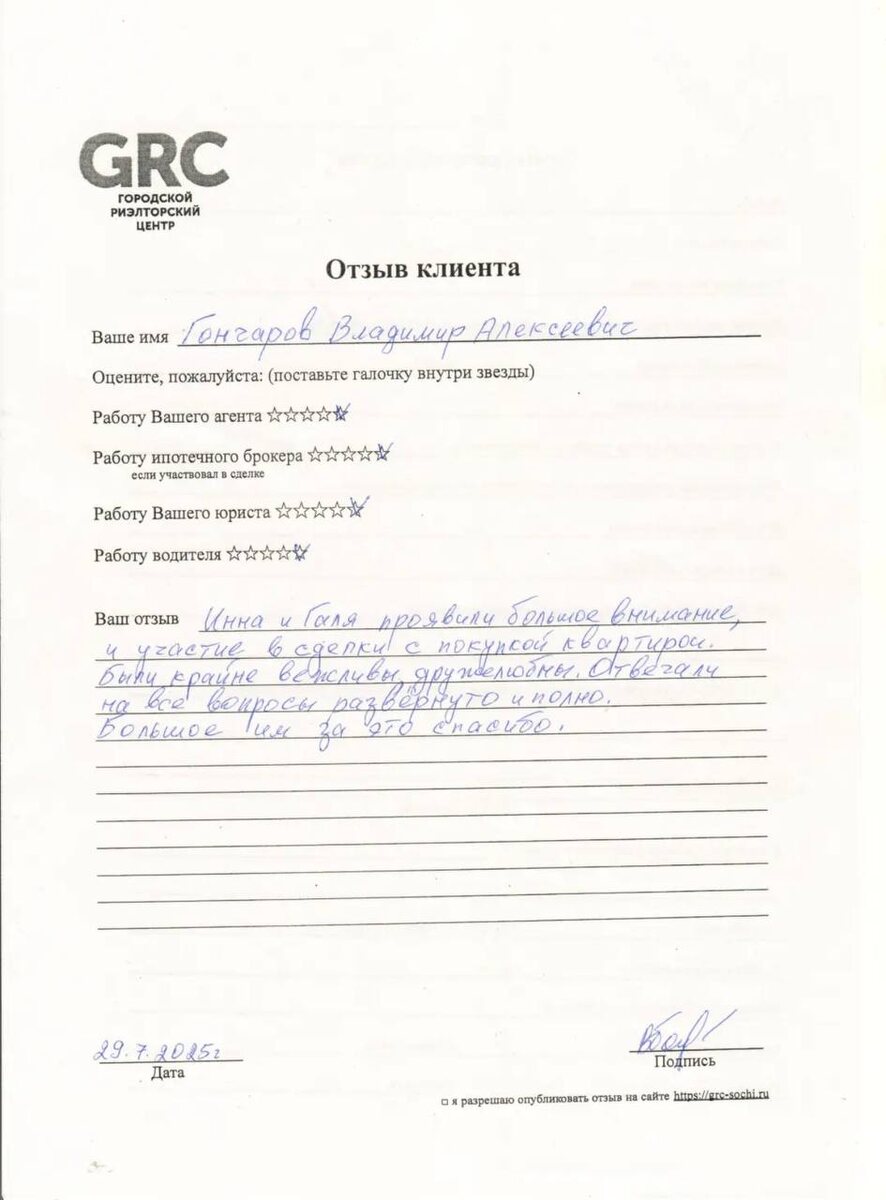 GRC
ГОРОДСКОЙ
РИЭЛТОРСКИЙ
ЦЕНТР
Отзыв клиента
Ваше имя Гончаров Владимир Алексеевич
Оцените, пожалуйста: (поставьте галочку внутри звезды)
Работу Вашего агента ☆☆☆☆☆
Работу ипотечного брокера ☆☆☆☆☆
если участвовал в сделке
Работу Вашего юриста ☆☆☆☆☆
Работу водителя ☆☆☆☆☆
Ваш отзыв Инна и Галя проявили большое внимание,
и участие в сделки с покупкой квартирой.
Были крайне вежливы, дружелюбны. Отвечали
на все вопросы развёрнуто и полно.
Большое им за это спасибо.
29.7.2025г
Дата
Подпись
□ я разрешаю опубликовать отзыв на сайте https://grc-sochi.ru